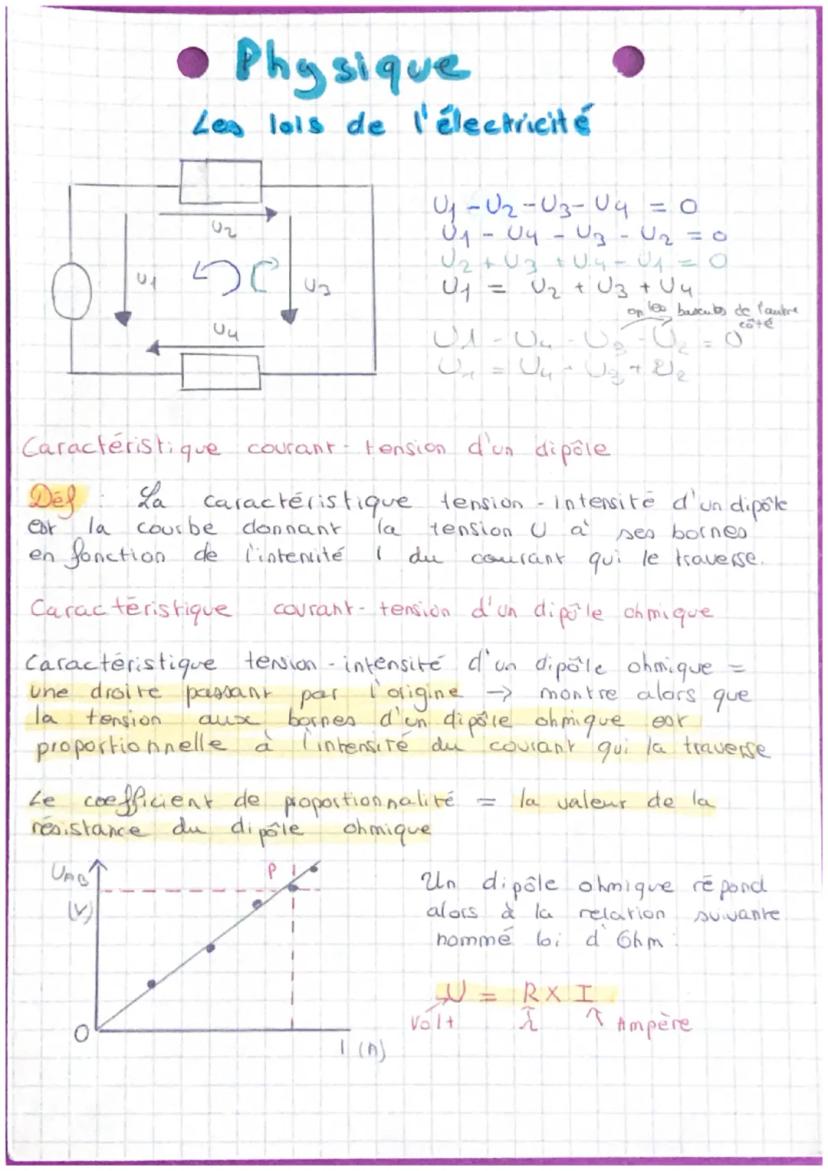 Physique
Les lois de l'électricité
U2
U1
U3
U4
U1 - U2 - U3 - U4 = 0
U1 - U4 - U3 - U2 = 0
U2 + U3 + U4 - U1 = 0
U1 = U2 + U3 + U4
on les bascules de l'autre
côté
U1 - U4 - U3 - U2 = 0
Caractéristique courant-tension d'un dipôle
Déf : La caractéristique tension-intensité d'un dipôle
est la courbe donnant la tension U à ses bornes
en fonction de l'intensité I du courant qui le traverse.
Caractéristique courant-tension d'un dipôle ohmique
Caractéristique tension-intensité d'un dipôle ohmique =
une droite passant par l'origine → montre alors que
la tension aux bornes d'un dipôle ohmique est
proportionnelle à l'intensité du courant qui la traverse
Le coefficient de proportionnalité = la valeur de la
résistance du dipôle ohmique
UAB
(V)
P
O
I (A)
Un dipôle ohmique répond
alors à la relation suivante
nommé loi d'Ohm :
U = R X I
Volt
Ampère